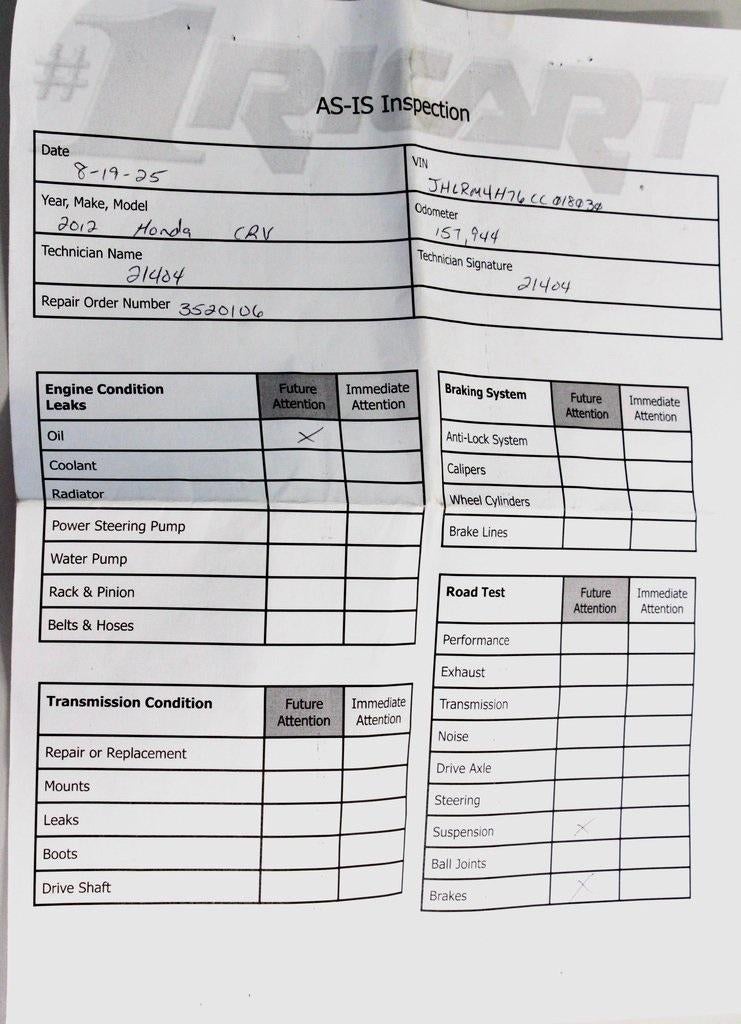 #1 RICART
AS-IS Inspection
Date
8-19-25
VIN
JHLRM4H76CC018030
Year, Make, Model
2012 Honda CRV
Odometer
157,944
Technician Name
21404
Technician Signature
21404
Repair Order Number 3520106
Engine Condition Leaks
Future Attention
Immediate Attention
Oil X
Coolant
Radiator
Power Steering Pump
Water Pump
Rack & Pinion
Belts & Hoses
Transmission Condition
Future Attention
Immediate Attention
Repair or Replacement
Mounts
Leaks
Boots
Drive Shaft
Braking System
Future Attention
Immediate Attention
Anti-Lock System
Calipers
Wheel Cylinders
Brake Lines
Road Test
Future Attention
Immediate Attention
Performance
Exhaust
Transmission
Noise
Drive Axle
Steering
Suspension X
Ball Joints
Brakes X